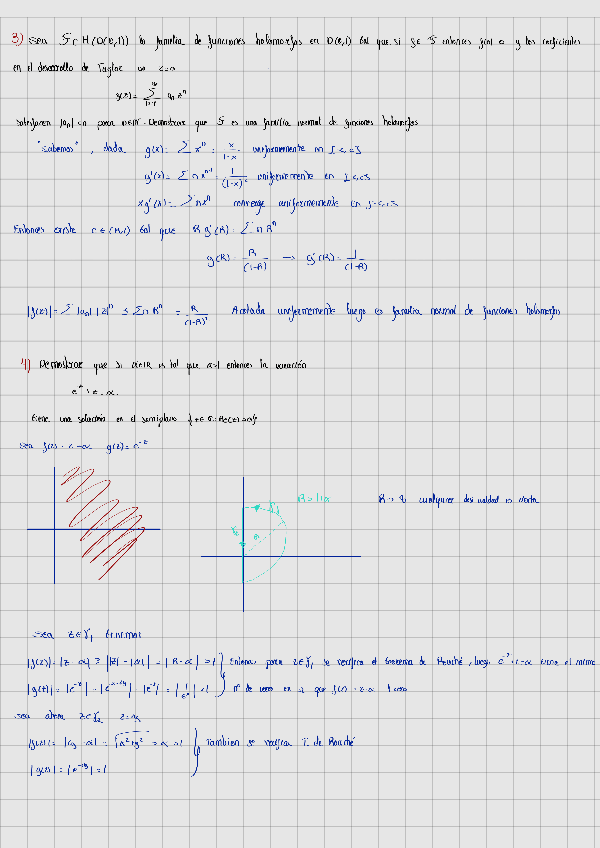 3) Sea F ⊂ H(D(0,1)) la familia de funciones holomorfas en D(0,1) tal que si f∈F entonces f(0)=0 y los coeficientes
en el desarrollo de Taylor en z=0
f(z) = ∑ aₙ zⁿ
satisfacen |aₙ| ≤ n para n∈ℕ. Demostrar que F es una familia normal de funciones holomorfas
"Sabemos", dada g(x) = ∑ xⁿ = x/(1-x) uniformemente en
g'(x) = ∑ n xⁿ⁻¹ = 1/(1-x)² uniformemente en
x g'(x) = ∑ n xⁿ converge uniformemente en
Entonces existe r ∈ (0,1) tal que R g'(R) = ∑ n Rⁿ
g(R) = R/(1-R) → g'(R) = 1/(1-R)
|f(z)| = ∑ |aₙ| |z|ⁿ ≤ ∑ n Rⁿ = R/(1-R)² Acotada uniformemente luego es familia normal de funciones holomorfas
4) Demostrar que si α∈ℝ es tal que α>1 entonces la ecuación
tiene una solución en el semiplano {z∈ℂ: Re(z)>0}
Sea f(z) = z-α g(z) = e⁻ᶻ
cualquier desigualdad es cierta
Sea z∈γ₁
|f(z)| = |z-α| ≥ ||z|-|α|| = |R-α| > 1 Entonces para z∈γ₁ se verifica el teorema de Rouché, luego tiene el mismo
|g(z)| = |e⁻ᶻ| nº de ceros en que f(z) = z-α 1 cero
Sea ahora z∈γ₂ z=iy
|f(z)| = |iy-α| = √(α²+y²) = α > 1 También se verifica T. de Rouché
|g(z)| = |e⁻ⁱʸ| = 1